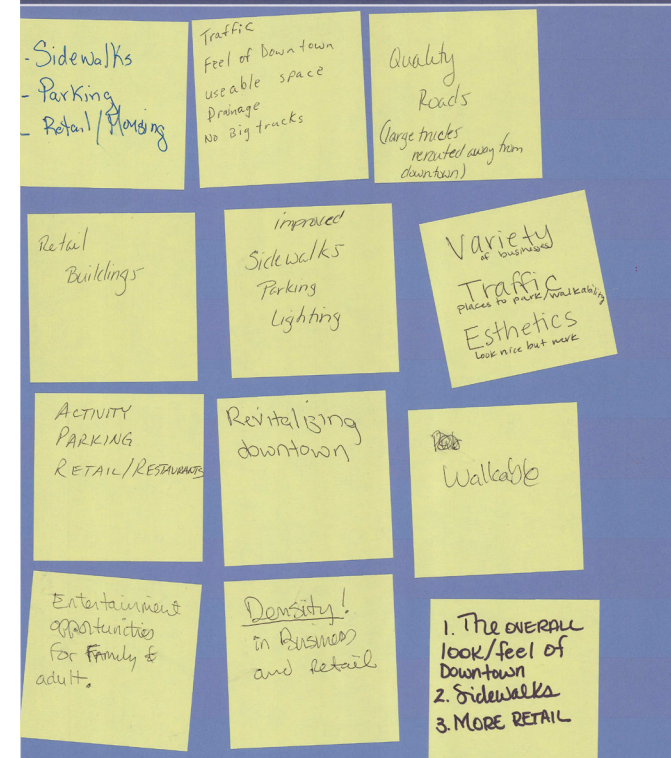 - Sidewalks
- Parking
- Retail/Housing
Traffic
Feel of Downtown
useable space
Drainage
No Big trucks
Quality
Roads
(large trucks
rerouted away from
downtown)
Retail
Buildings
improved
Sidewalks
Parking
Lighting
Variety
of businesses
Traffic
places to park/walkability
Esthetics
Look nice but work
ACTIVITY
PARKING
RETAIL/RESTAURANTS
Revitalizing
downtown
Walkable
Entertainment
opportunities
for Family &
adult.
Density!
in Business
and Retail
1. The OVERALL
look/feel of
Downtown
2. Sidewalks
3. MORE RETAIL